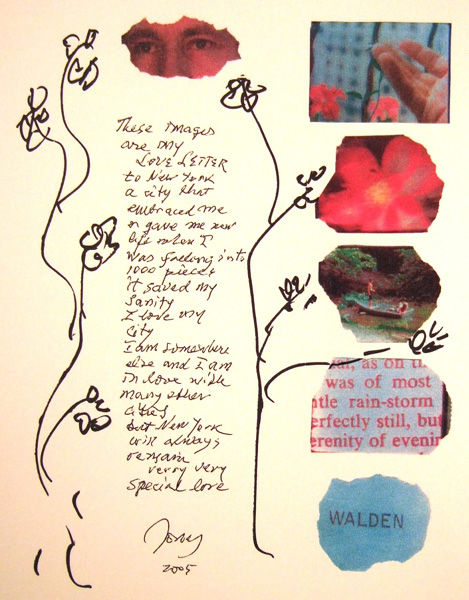 These images
are my
LOVE LETTER
to New York
a city that
embraced me
n gave me new
life when I
was falling into
1000 pieces
it saved my
sanity
I love my
city
I am somewhere
else and I am
in love with
many other
cities
but New York
will always
remain
verry verry
special love
Jonas
2005
val, as on th
was of most
ntle rain-storm
erfectly still, but
erenity of evenin
WALDEN